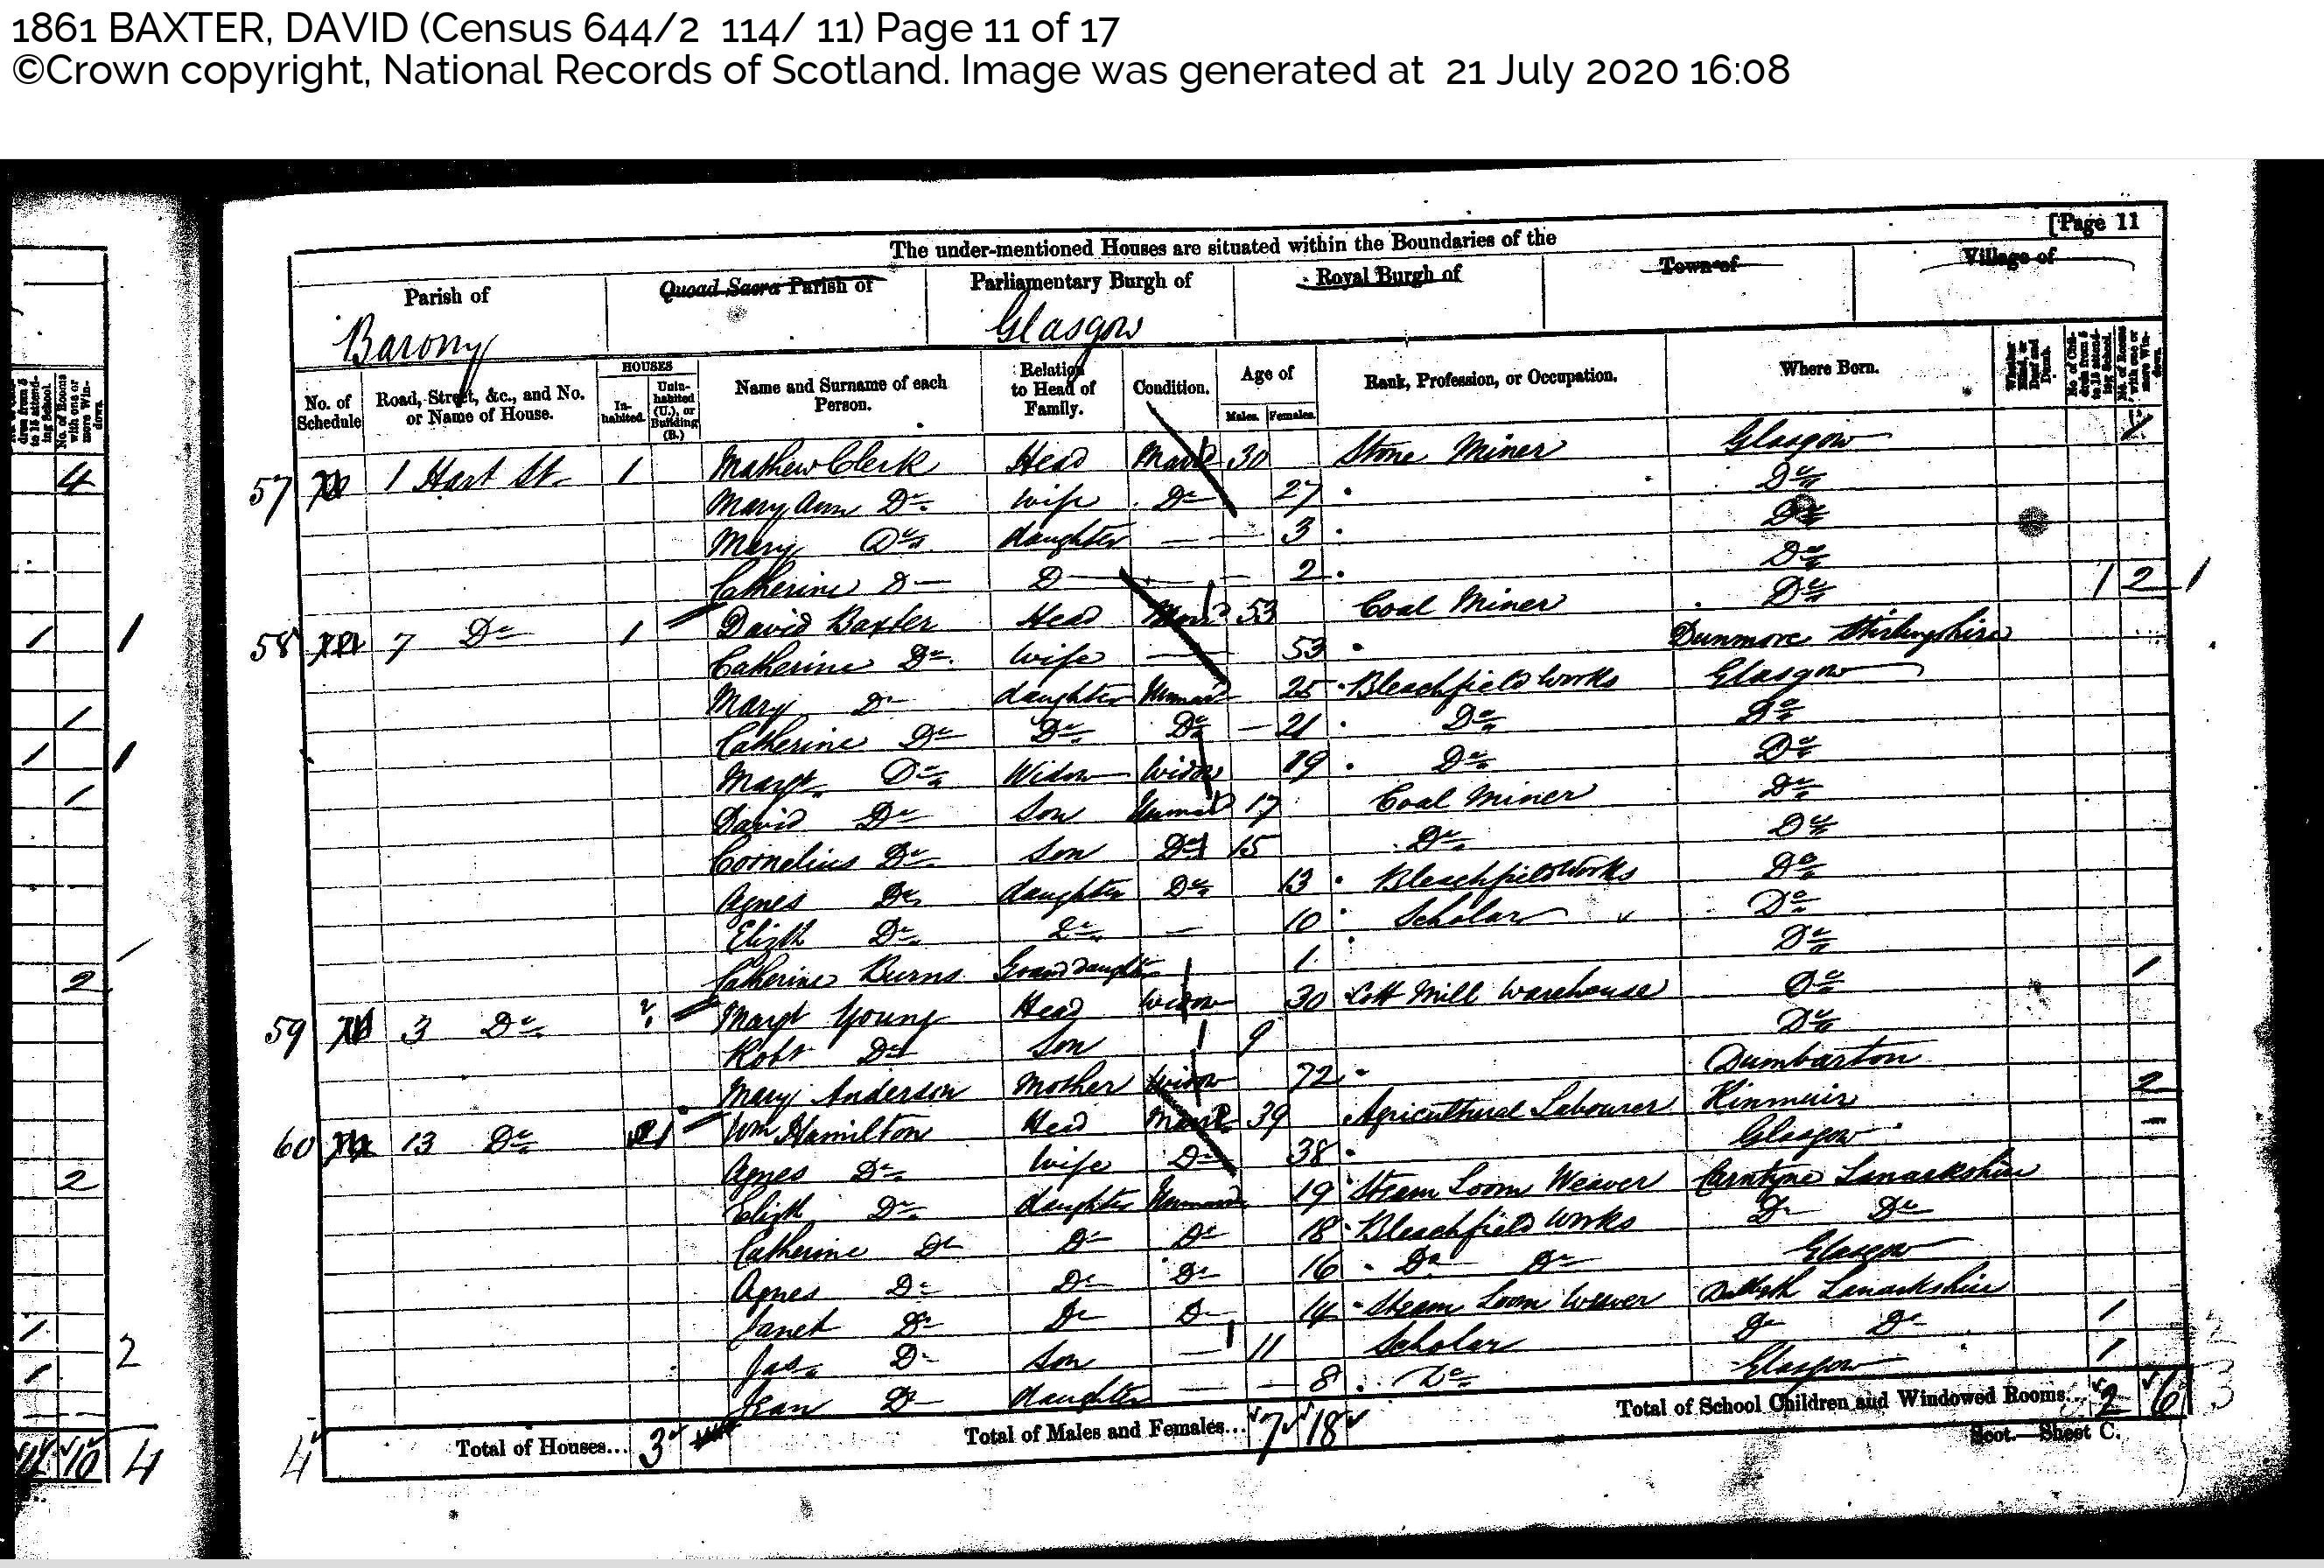 1861 BAXTER, DAVID (Census 644/2 114/ 11) Page 11 of 17
©Crown copyright, National Records of Scotland. Image was generated at 21 July 2020 16:08
[Page 11
The under-mentioned Houses are situated within the Boundaries of the
Parish of Quoad Sacra Parish of Parliamentary Burgh of Royal Burgh of Town of Village of
Barony Glasgow
No. of Schedule Road, Street, &c., and No. or Name of House. HOUSES Inhabited. Uninhabited (U.), or Building (B.) Name and Surname of each Person. Relation to Head of Family. Condition. Age of Males. Females. Rank, Profession, or Occupation. Where Born. Whether Blind, or Deaf and Dumb. No. of Children from 5 to 15 attending School. No. of Rooms with one or more Windows.
57 1 Hart St. 1 Mathew Clerk Head Mard 30 Stone Miner Glasgow 1
Mary Ann Do Wife Do 27 Do
Mary Do daughter 3 Do
Catherine D D 2 Do
58 7 Do 1 David Baxter Head Mard 53 Coal Miner Do 1 2 1
Catherine Do Wife 53 Dunmore Stirlingshire
Mary Do daughter Unmard 25 Bleachfield Works Glasgow
Catherine Do Do Do 21 Do Do
Margt Do Widow Widow 19 Do Do
David Do Son Unmard 17 Coal Miner Do
Cornelius Do Son Do 15 Do Do
Agnes Do daughter Do 13 Bleachfield Works Do
Elizth Do Do 10 Scholar Do
Catherine Burns Grand daughter 1 Do
59 3 Do Margt Young Head Widow 30 Cott Mill Warehouse Do 1
Robt Do Son 9 Do
Mary Anderson Mother Widow 72 Dumbarton
60 13 Do 1 Wm Hamilton Head Mard 39 Agricultural Labourer Kinmuir 2
Agnes Do Wife Do 38 Glasgow
Elizth Do daughter Unmard 19 Steam Loom Weaver Carntyne Lanarkshire
Catherine Do Do Do 18 Bleachfield Works Do Do
Agnes Do Do Do 16 Do Do Glasgow
Janet Do Do Do 14 Steam Loom Weaver Lanarkshire
Jas. Do Son 11 Scholar Do Do 1
Jean Do daughter 8 Do Glasgow 1
Total of Houses... 3 Total of Males and Females... 7 18 Total of School Children and Windowed Rooms... 2 6
Scot.—Sheet C.